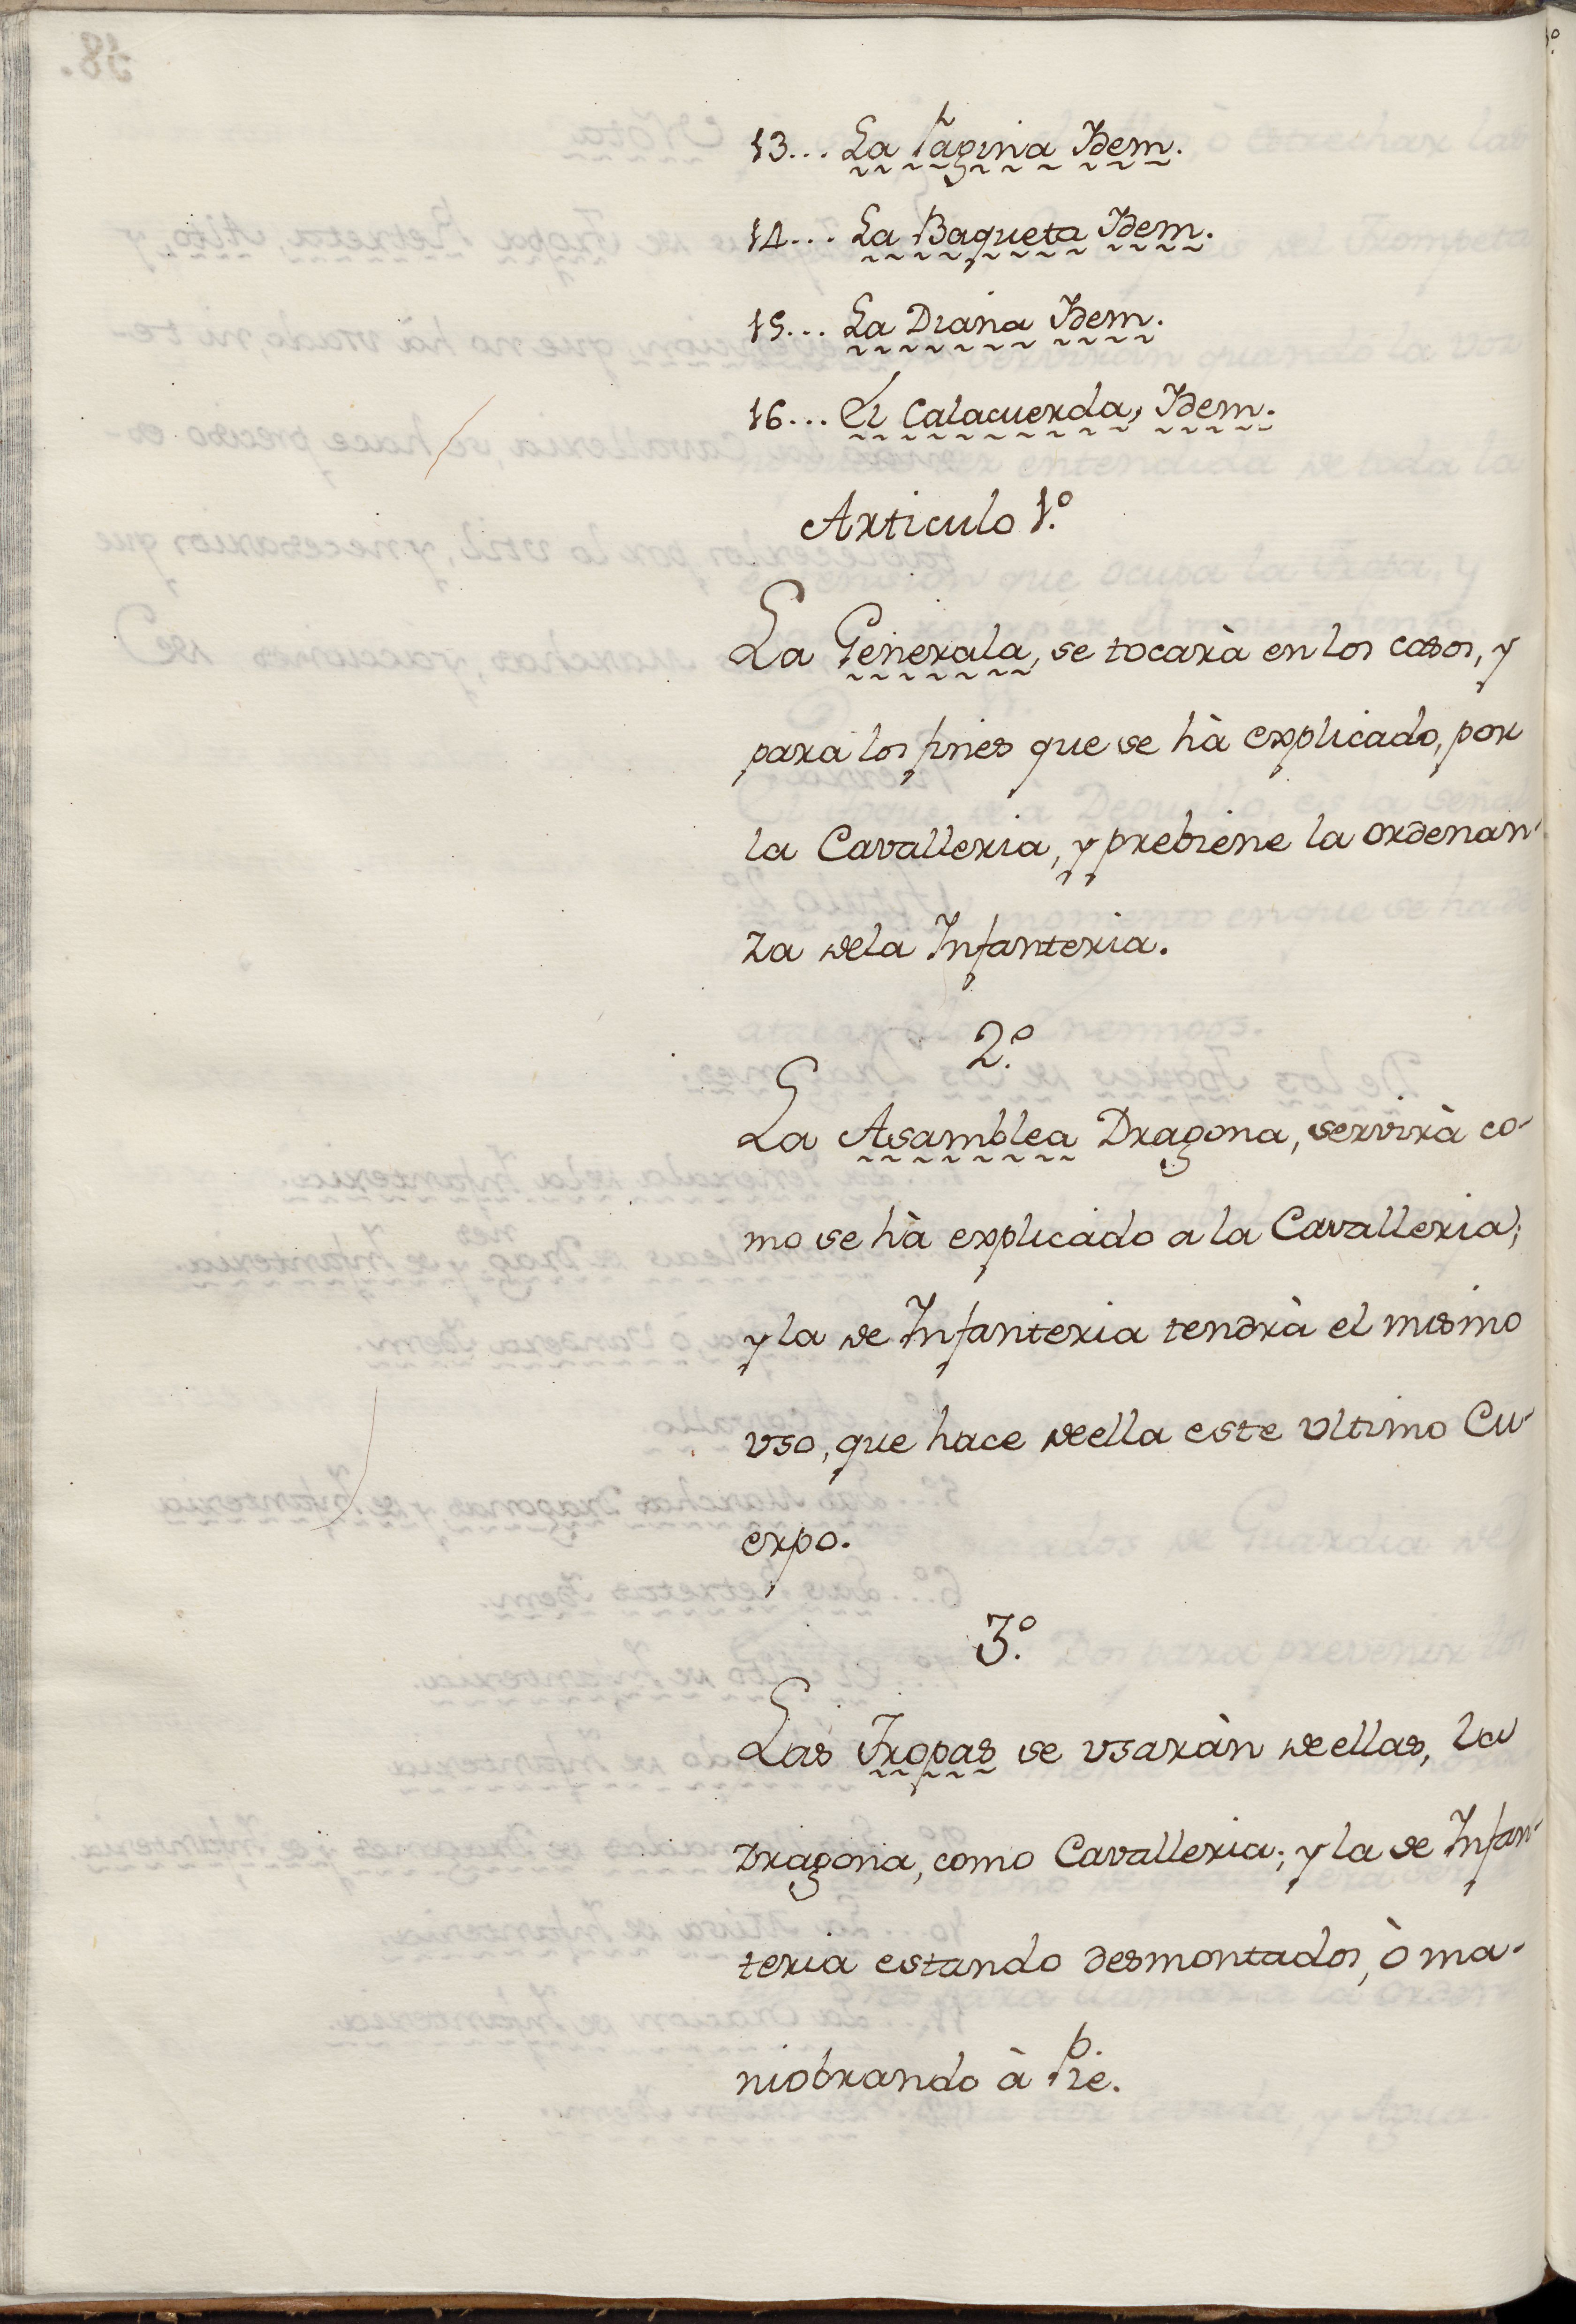 13... La Pagina Idem.
14... La Baqueta Idem.
15... La Diana Idem.
16... El Calacuerda, Idem.
Articulo 1.º
La Generala, se tocarà en los casos, y
para los fines que se hà explicado, por
la Cavalleria, y prebiene la ordenan-
za dela Infanteria.
2.º
La Asamblea Dragona, servirà co-
mo se hà explicado a la Cavalleria;
y la de Infanteria tendrà el mismo
vso, que hace deella este vltimo Cu-
erpo.
3.º
Las Tropas se vsaràn deellas, la
Dragona, como Cavalleria; y la de Infan-
teria estando desmontados, ò ma-
niobrando à Pie.